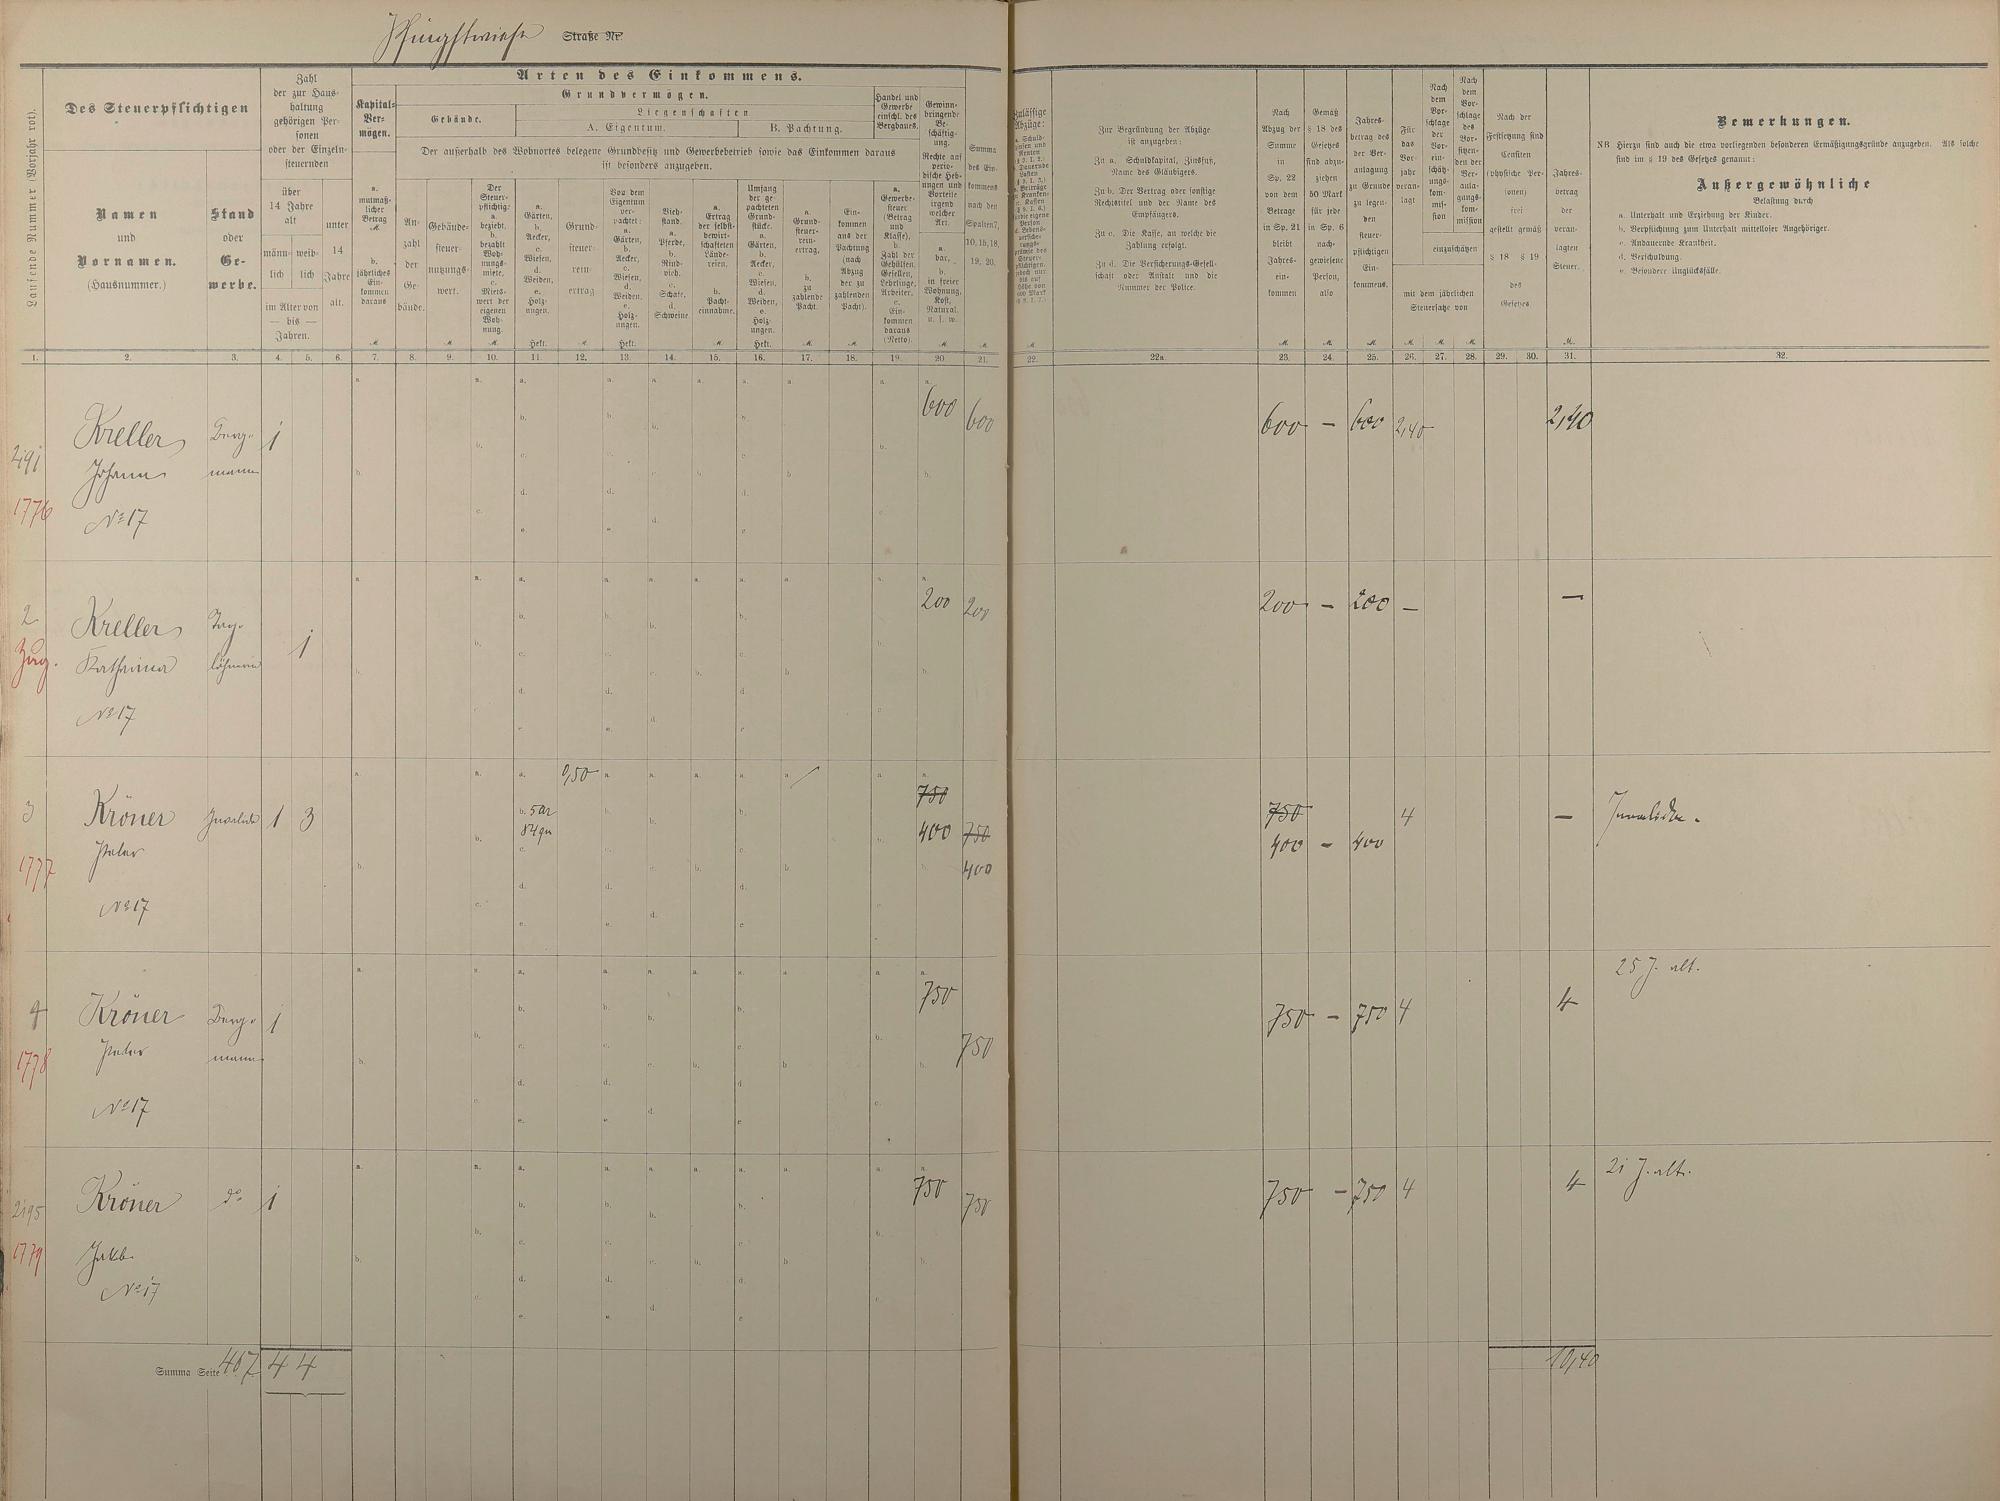 Pfingstwiese Straße Nr.
Laufende Nummer (Vorjahr rot).
Des Steuerpflichtigen
Namen
und
Vornamen.
(Hausnummer.)
Stand
oder
Ge-
werbe.
Zahl
der zur Haus-
haltung
gehörigen Per-
sonen
oder der Einzeln-
steuernden
über
14 Jahre
alt
männ-
lich
weib-
lich
im Alter von
— bis —
Jahren.
unter
14
Jahre
alt.
Arten des Einkommens.
Kapital-
Ver-
mögen.
a.
mutmaß-
licher
Betrag
M.
b.
jährliches
Ein-
kommen
daraus
M.
Grundvermögen.
Gebäude.
Liegenschaften
A. Eigentum.
B. Pachtung.
Der außerhalb des Wohnortes belegene Grundbesitz und Gewerbebetrieb sowie das Einkommen daraus
ist besonders anzugeben.
An-
zahl
der
Ge-
bäude.
Gebäude-
steuer-
nutzungs-
wert.
M.
Der
Steuer-
pflichtig:
a.
bezieht.
b.
bezahlt
Woh-
nungs-
miete.
c.
Miets-
wert der
eigenen
Woh-
nung.
M.
a.
Gärten,
b.
Aecker,
c.
Wiesen,
d.
Weiden,
e.
Holz-
ungen.
Hekt.
Grund-
steuer-
rein-
ertrag
M.
Von dem
Eigentum
ver-
pachtet:
a.
Gärten,
b.
Aecker,
c.
Wiesen,
d.
Weiden,
e.
Holz-
ungen.
Hekt.
Vieh-
stand.
a.
Pferde,
b.
Rind-
vieh.
c.
Schafe,
d.
Schweine.
a.
Ertrag
der selbst-
bewirt-
schafteten
Lände-
reien.
b.
Pacht-
einnahme.
M.
Umfang
der ge-
pachteten
Grund-
stücke.
a.
Gärten,
b.
Aecker,
c.
Wiesen,
d.
Weiden,
e.
Holz-
ungen.
Hekt.
a.
Grund-
steuer-
rein-
ertrag,
b.
zu
zahlende
Pacht.
M.
Ein-
kommen
aus der
Pachtung
(nach
Abzug
der zu
zahlenden
Pacht).
M.
Handel und
Gewerbe
einschl. des
Bergbaues.
a.
Gewerbe-
steuer
(Betrag
und
Klasse),
b.
Zahl der
Gehülfen,
Gesellen,
Lehrlinge,
Arbeiter,
c.
Ein-
kommen
daraus
(Netto).
Gewinn-
bringende
Be-
schäftig-
ung.
Rechte auf
perio-
dische Heb-
ungen und
Vorteile
irgend
welcher
Art.
a.
bar,
b.
in freier
Wohnung,
Kost,
Natural.
u. s. w.
M.
Summa
des Ein-
kommens
nach den
Spalten 7,
10, 15, 18,
19, 20.
M.
Zulässige
Abzüge:
M.
Zur Begründung der Abzüge
ist anzugeben:
Zu a. Schuldkapital, Zinsfuß,
Name des Gläubigers.
Zu b. Der Vertrag oder sonstige
Rechtstitel und der Name des
Empfängers.
Zu c. Die Kasse, an welche die
Zahlung erfolgt.
Zu d. Die Versicherungs-Gesell-
schaft oder Anstalt und die
Nummer der Police.
Nach
Abzug der
Summe
in
Sp. 22
von dem
Betrage
in Sp. 21
bleibt
Jahres-
ein-
kommen
M.
Gemäß
§ 18 des
Gesetzes
sind abzu-
ziehen
50 Mark
für jede
in Sp. 6
nach-
gewiesene
Person,
also
M.
Jahres-
betrag des
der Ver-
anlagung
zu Grunde
zu legen-
den
steuer-
pflichtigen
Ein-
kommens.
M.
Für
das
Vor-
jahr
veran-
lagt
M.
Nach
dem
Vor-
schlage
der
Vor-
ein-
schätz-
ungs-
kom-
mis-
sion
M.
Nach
dem
Vor-
schlage
des
Vor-
sitzen-
den der
Ver-
anla-
gungs-
kom-
mission
M.
einzuschätzen
mit dem jährlichen
Steuersatze von
Nach der
Festsetzung sind
Censiten
(physische Per-
sonen)
frei
gestellt gemäß
§ 18 § 19
des
Gesetzes.
Jahres-
betrag
der
veran-
lagten
Steuer.
M.
Bemerkungen.
NB Hierzu sind auch die etwa vorliegenden besonderen Ermäßigungsgründe anzugeben. Als solche
sind im § 19 des Gesetzes genannt:
Außergewöhnliche
Belastung durch
a. Unterhalt und Erziehung der Kinder.
b. Verpflichtung zum Unterhalt mittelloser Angehöriger.
c. Andauernde Krankheit.
d. Verschuldung.
e. Besondere Unglücksfälle.
1. 2. 3. 4. 5. 6. 7. 8. 9. 10. 11. 12. 13. 14. 15. 16. 17. 18. 19. 20 21. 22. 22a. 23. 24. 25. 26. 27. 28. 29. 30. 31. 32.
2191 Kreller Berg- 1 600 600 600 – 600 2,40 2,40
Johann mann
1776
No 17
2 Kreller Tag- 1 200 200 200 – 200 – –
Zug. Katharina löhnerin
No 17
3 Kröner Invalide 1 3 0,50 750 750 4 – Invalide.
b. 5 ar
84 qm
400 750 400 – 400
1777 Peter 400
No 17
25 J. alt.
4 Kröner Berg- 1 750 750 750 – 750 4 4
1778 Peter mann
No 17
21 J. alt.
2195 Kröner do 1 750 750 750 – 750 4 4
1779 Jakob
No 17
Summa Seite 407 4 4 10,40